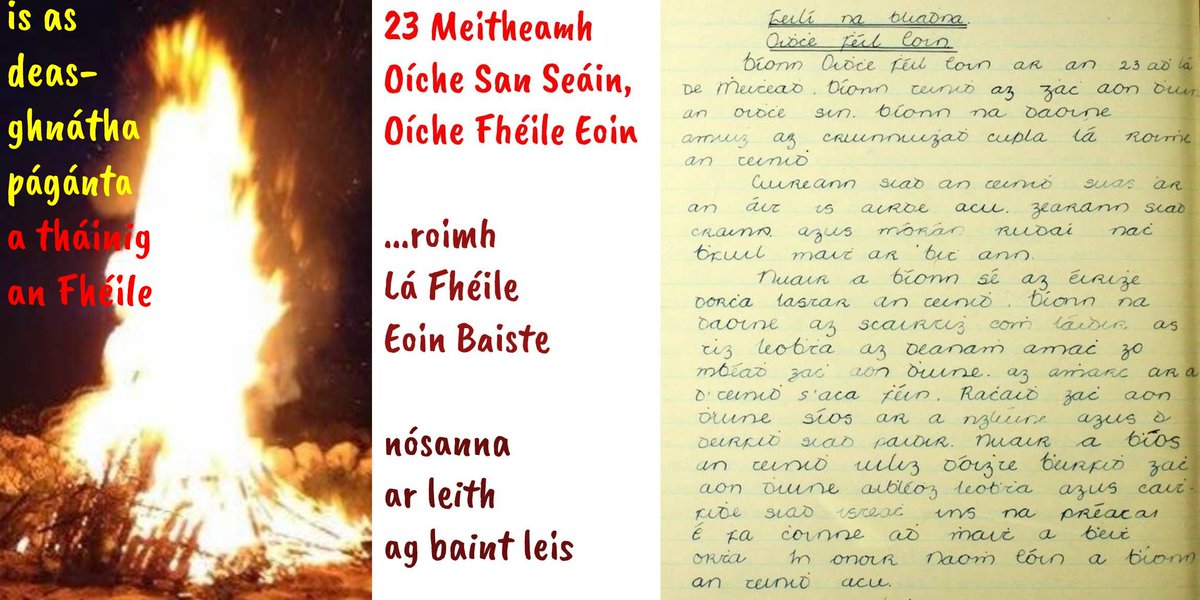 is as
deas-
ghnátha
págánta
a tháinig
an Fhéile
23 Meitheamh
Oíche San Seáin,
Oíche Fhéile Eoin
...roimh
Lá Fhéile
Eoin Baiste
nósanna
ar leith
ag baint leis
Féilí na bliaḋna.
Oiḋċe Féil Eoin
Bíonn Oiḋċe Féil Eoin ar an 23 aḋ lá
De Meiṫeaṁ. Bíonn teiniḋ ag gaċ aon duine
an oiḋċe sin. Bíonn na daoine
amuiġ ag cruinniuġaḋ cupla lá roiṁe
an teiniḋ
Cuireann siad an teiniḋ suas ar
an áit is airde acu. Gearann siad
crainn agus mórán rudaí naċ
ḃfuil mait ar biṫ ann.
Nuair a ḃíonn sé ag éiriġe
dorċa lastar an teiniḋ. Bíonn na
daoine ag scairtiġ coṁ láidir as
tig leoḃṫa ag deanaṁ amaċ go
mbéaḋ gaċ aon duine ag aṁarc ar a
d'teiniḋ s'aca féin. Raċaiḋ gaċ aon
duine síos ar a nglúine agus
déirfiḋ siad paidir. Nuair a ḃíos
an teiniḋ uilig dóiġte béirfiḋ gaċ
aon duine aibleóg leoḃṫa agus cait-
fiḋe siad isteaċ ins na préataí
é fa ċoinne áḋ ṁaiṫ a ḃeiṫ
orṫa In onoir Naoṁ Eóin a ḃíonn
an teiniḋ acu.